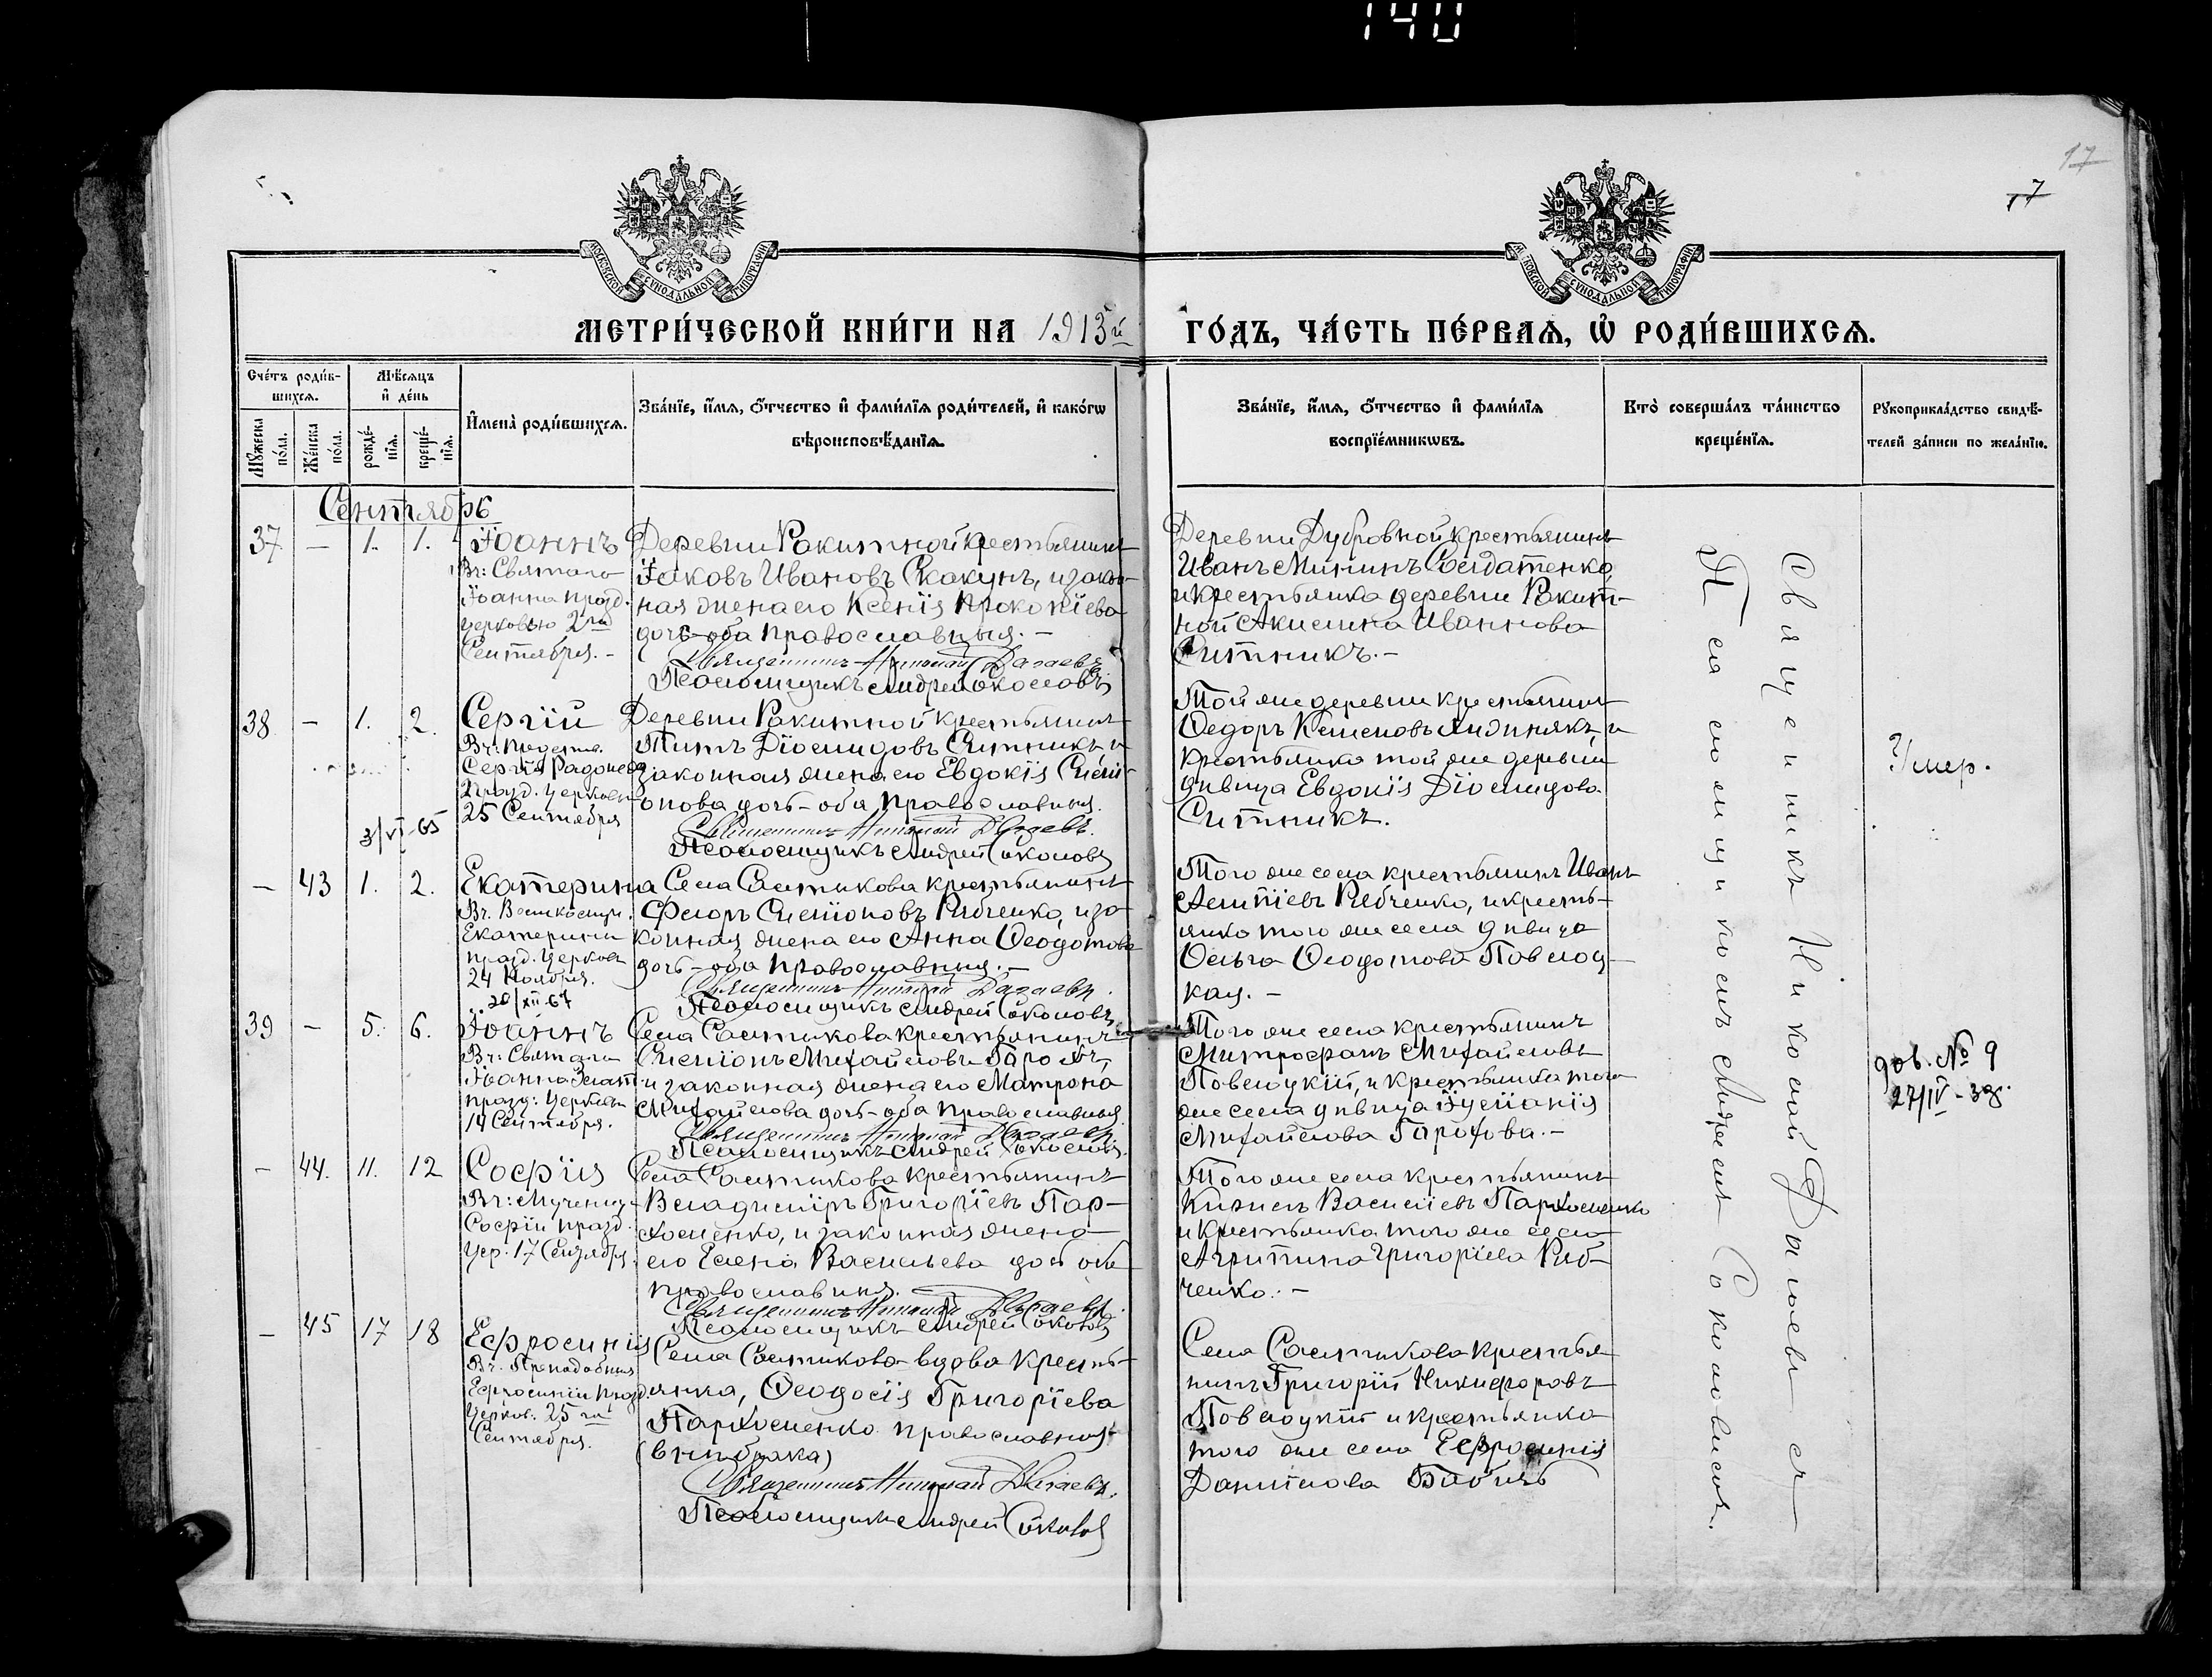 140
17
17
МОСКОВСКОЙ СѴНОДАЛЬНОЙ ТИПОГРАФІИ
МОСКОВСКОЙ СѴНОДАЛЬНОЙ ТИПОГРАФІИ
МЕТРИ́ЧЕСКОЙ КНИ́ГИ НА 1913й ГО́ДЪ, ЧА́СТЬ ПЕ́РВАѦ, Ѡ҆ РОДИ́ВШИХСѦ.
Сче́тъ роди́в-
шихсѧ.
Мѣ́сѧцъ
и҆ де́нь
Мꙋ́жеска
по́ла.
Же́нска
по́ла.
рожде́-
нїѧ.
креще́-
нїѧ.
И҆мена̀ роди́вшихсѧ.
Зва́нїе, и҆́мѧ, ѻ҆́тчество и҆ фами́лїѧ роди́телей, и҆ како́гѡ
вѣроисповѣ́данїѧ.
Зва́нїе, и҆́мѧ, ѻ҆́тчество и҆ фами́лїѧ
воспрїе́мникѡвъ.
Кто̀ соверша́лъ та́инство
креще́нїѧ.
Рꙋкоприкла́дство свидѣ́-
телей за́писи по жела́нїю.
Сентябрь
37 — 1. 1. Іоаннъ
Вч: Святаго
Іоанна празд.
церковью 2го
Сентября.—
Деревни Ракитной крестьянинъ
Іаковъ Ивановъ Скакунъ, и закон-
ная жена его Ксенія Прокопіева
дочь—оба православныя.—
Священникъ Николай
Псаломщикъ Андрей Соколовъ
Деревни Дубровной крестьянинъ
Иванъ Мининъ Солдатенко,
и крестьянка деревни Ракит-
ной Акилина Иваннова
Ситникъ.—
38 — 1. 2. Сергій
Вч: Преподо.
Сергія Радонеж
празд. церковь
25 Сентября
3/VI-65
Деревни Ракитной крестьянинъ
Титъ Діомидовъ Ситникъ и
законная жена его Евдокія Симе-
онова дочь—оба православныя.
Священникъ Николай
Псаломщикъ Андрей Соколовъ
Той же деревни крестьянинъ
Ѳедоръ и
крестьянка той же деревни
дѣвица Евдокія Діомидова
Ситникъ.
Умер.
— 43 1. 2. Екатерина
Вч. Великомуч.
Екатерины
празд. церковь
24 Ноября.
20/XII-67
Села Салтыкова крестьянинъ
Симеоновъ Рябченко, и за-
конная жена его Анна Ѳеодотова
дочь—оба православныя.—
Священникъ Николай
Псаломщикъ Андрей Соколовъ
Того же села крестьянинъ Иванъ
Рябченко, и кресть-
янка того же села дѣвица
Ольга Ѳеодотова Павлоц-
кая.—
39 — 5. 6. Іоаннъ
Вч: Святаго
Іоанна Злат.
празд: церковь
14 Сентября.
Села Салтыкова крестьянинъ
Симеонъ Михайловъ
и законная жена его Матрона
Михайлова дочь—оба православныя
Священникъ Николай
Псаломщикъ Андрей Соколовъ.
Того же села крестьянинъ
Митрофанъ Михайловъ
Павлоцкій, и крестьянка того
же села дѣвица Іуліанія
Михайлова Горохова.—
дов. № 9
27/IV-38.
— 44. 11. 12 Софія
Вч: Мучениц.
Софіи празд.
цер. 17 Сентября.
Села Салтыкова крестьянинъ
Владиміръ Григоріевъ Пар-
хоменко, и законная жена
его Елена Васильева дочь оба
православныя.
Священникъ Николай
Псаломщикъ Андрей Соколовъ
Того же села крестьянинъ
Василіевъ Пархоменко
и крестьянка того же села
Агрипина Григоріева Ряб-
ченко.—
— 45 17 18 Ефросинія
Вч. Преподобныя
Ефросиніи празд.
церков. 25го
Сентября.
Села Салтыкова вдова кресть-
янка, Ѳеодосія Григоріева
Пархоменко православная
(внѣ брака)
Священникъ Николай
Псаломщикъ Андрей Соколовъ
Села Салтыкова крестья-
нинъ Григорій Никифоровъ
Павлоцкій и крестьянка
того же села Ефросинія
Даниилова
Священникъ Николай
Псаломщикомъ Андреемъ Соколовымъ.